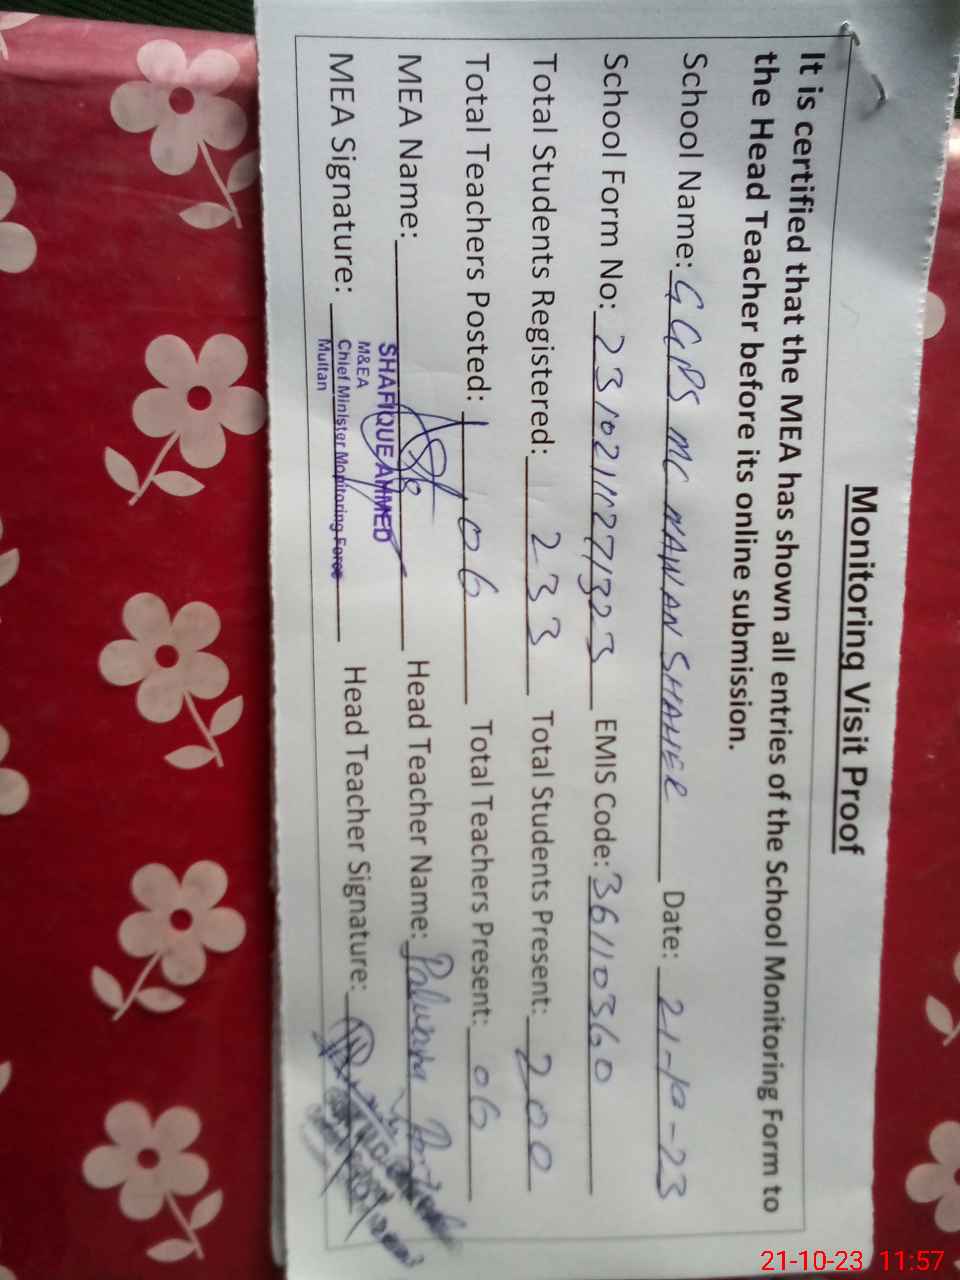 Monitoring Visit Proof
It is certified that the MEA has shown all entries of the School Monitoring Form to
the Head Teacher before its online submission.
School Name: GGPS MC NAWAN SHAHER Date: 21-10-23
School Form No: EMIS Code: 36110360
Total Students Registered: 233 Total Students Present: 200
Total Teachers Posted: 06 Total Teachers Present: 06
MEA Name: Head Teacher Name:
SHAFIQUE AHMED
M&EA
MEA Signature: Head Teacher Signature:
Chief Minister Monitoring Force
Multan
21-10-23 11:57